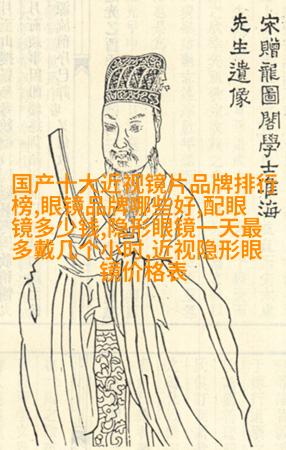 宋贈龍圖閣學士淮海
先生遺像
国产十大近视镜片品牌排行
榜,眼镜品牌哪些好,配眼
镜多少钱,隐形眼镜一天最
多戴几个小时,近视隐形眼
镜价格表